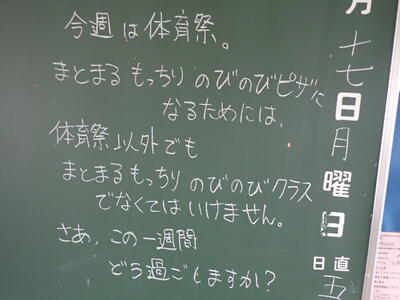 今週は体育祭。
まとまる もっちり のびのびピザに
なるためには、
体育祭以外でも
まとまる もっちり のびのびクラス
でなくてはいけません。
さあ、この一週間
どう過ごしますか?
月十七日月曜日
日直
五